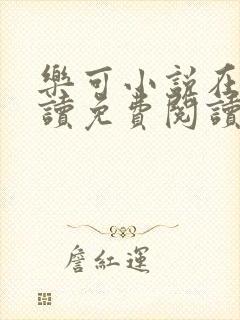 樂可小說在
讀免費閱讀
詹紅運